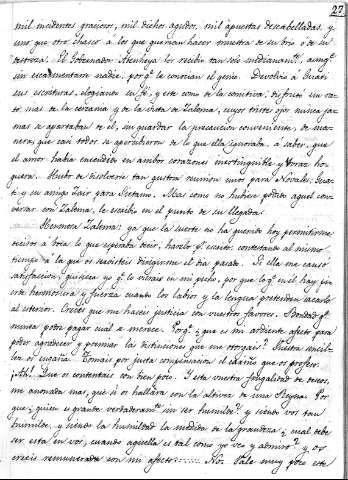 27
mil incidentes graciosos, mil dichos agudos, mil apuestas descabelladas, y
uno que otro chasco á los que querian hacer muestra de su brio ó de su
destreza. El Gobernador los recibio tan solo medianam.te, aunq.e
sin escarmentarse nadie, porq.e le conocian el genio. Devolvió á
sus escrituras, elogiando su fé, y este como de la comitiva, disfrutó un ra-
to mas de la cercania y de la vista de Zalema, cuyos tristes ojos nunca ja-
mas se apartaban de el, sin guardar la precaucion conveniente, de ma-
nera que casi todos se apercibieron de lo que ella ignoraba, á saber, que
el amor habia encendido en ambos corazones inextinguible y voraz ho-
guera. Hubo de disolverse tan gustosa reunion
y su amigo Zair para Mas como no hubiese podido aquel con-
versar con Zalema, le escribio en el punto de su llegada.
Hermosa Zalema: ya que la suerte no ha querido hoy permitirme
deciros á boca lo que esperaba decir, harelo p.r escrito: contestando al mismo
tiempo á la que os servisteis dirigirme el dia pasado. Si ella me causó
satisfaccion, quisiera yo q.e lo vierais en mi pecho, por que lo q.e en él hay pier-
de hermosura y fuerza cuando los labios y la lengua pretenden sacarlo
al exterior. Creeis que me haceis justicia con vuestros favores. Bondad q.e
nunca podré pagar cual se merece. Porq.e ¿que es mi ardiente afecto para
poder agradecer y premiar las distinciones que me otorgais? Vuestra sencil-
lez os engaña. Tomais por justa compensacion el cariño que os profeso.
¡Ah! Que os contentais con bien poco. Y esta vuestra frugalidad de deseos,
me anonada mas, que si os hallara con la altivez de una Reyna. Por
que ¿quien es grande verdaderam.te sin ser humilde? y siendo vos tan
humilde, y siendo la humildad la medida de la grandeza, ¿cual debe
ser esta en vos, cuando aquella es tal como yo veo y admiro? y os
creeis remunerada con mi afecto.... No. Vale muy poco este